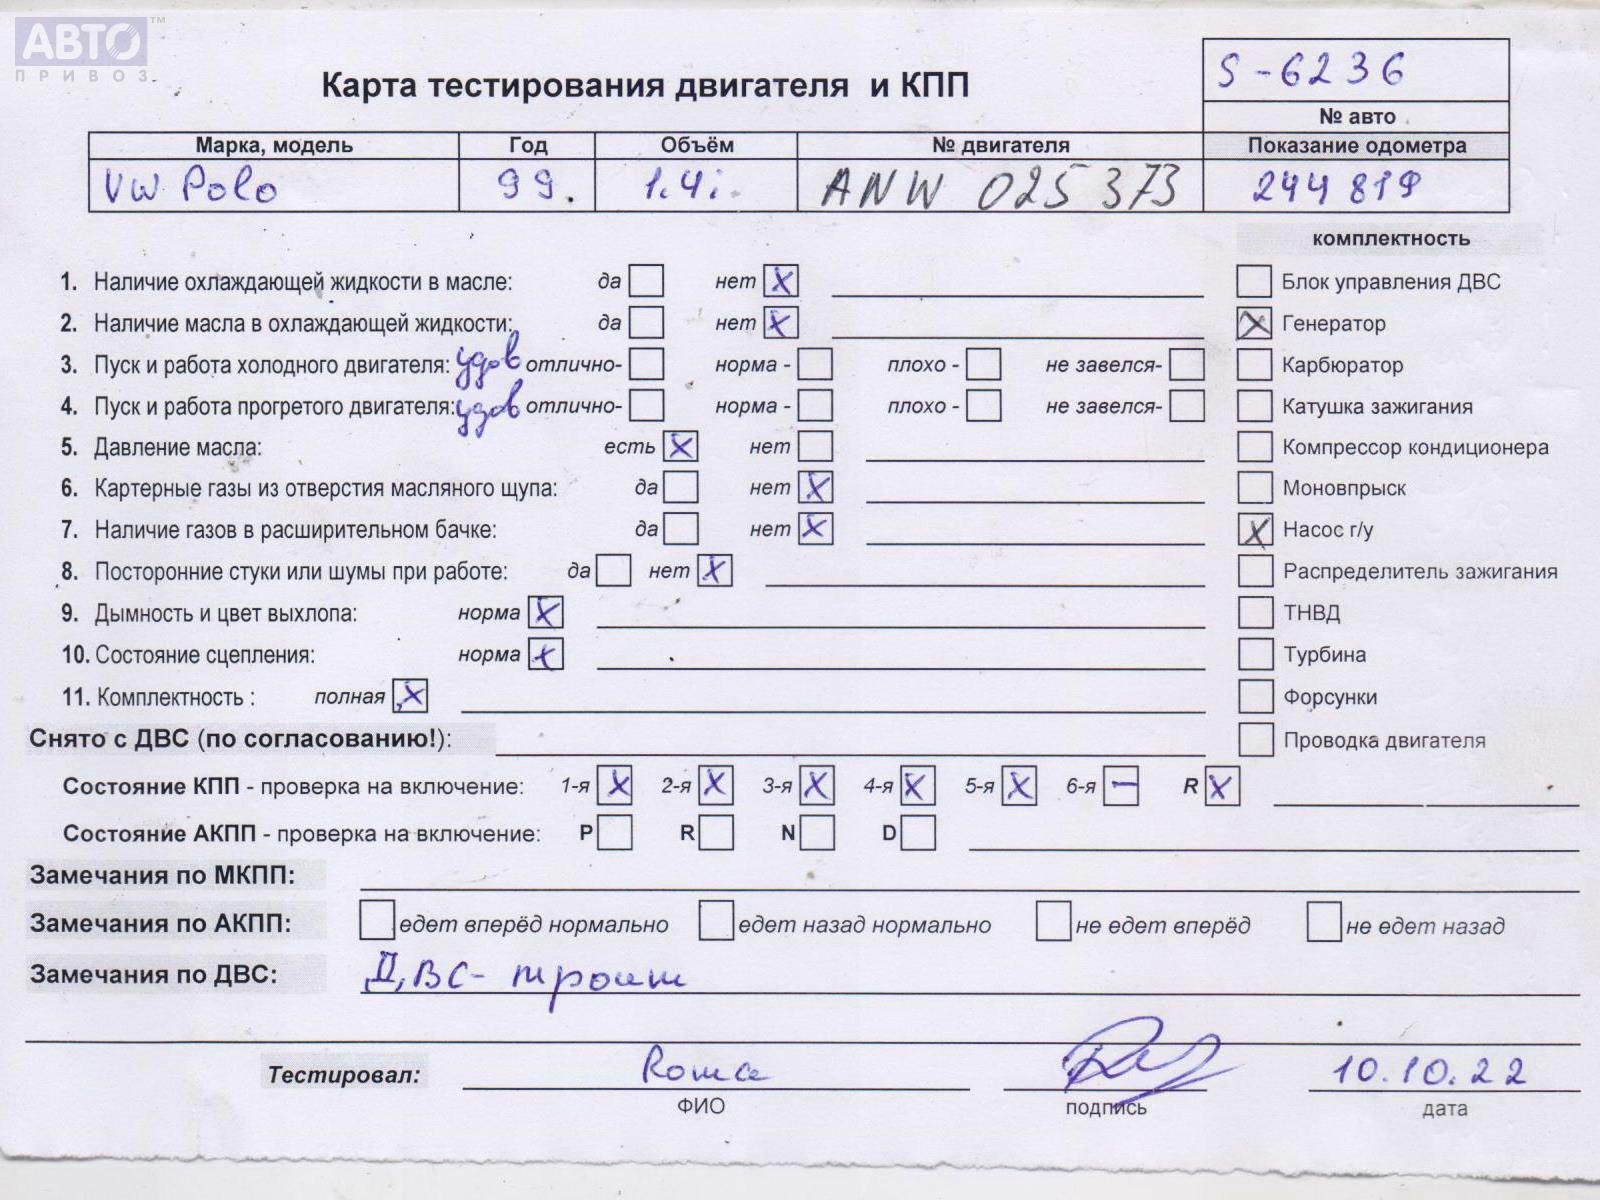 АВТО™
ПРИВОЗ
Карта тестирования двигателя и КПП
S-6236
№ авто
Марка, модель Год Объём № двигателя Показание одометра
VW Polo 99. 1.4i. ANW 025 373 244 819
комплектность
1. Наличие охлаждающей жидкости в масле: да нет X Блок управления ДВС
2. Наличие масла в охлаждающей жидкости: да нет X X Генератор
3. Пуск и работа холодного двигателя: удов отлично- норма - плохо - не завелся- Карбюратор
4. Пуск и работа прогретого двигателя: удов отлично- норма - плохо - не завелся- Катушка зажигания
5. Давление масла: есть X нет Компрессор кондиционера
6. Картерные газы из отверстия масляного щупа: да нет X Моновпрыск
7. Наличие газов в расширительном бачке: да нет X X Насос г/у
8. Посторонние стуки или шумы при работе: да нет X Распределитель зажигания
9. Дымность и цвет выхлопа: норма X ТНВД
10. Состояние сцепления: норма X Турбина
11. Комплектность : полная X Форсунки
Снято с ДВС (по согласованию!): Проводка двигателя
Состояние КПП - проверка на включение: 1-я X 2-я X 3-я X 4-я X 5-я X 6-я — R X
Состояние АКПП - проверка на включение: P R N D
Замечания по МКПП:
Замечания по АКПП: едет вперёд нормально едет назад нормально не едет вперёд не едет назад
Замечания по ДВС: ДВС- троит
Тестировал: Рома 10.10.22
ФИО подпись дата